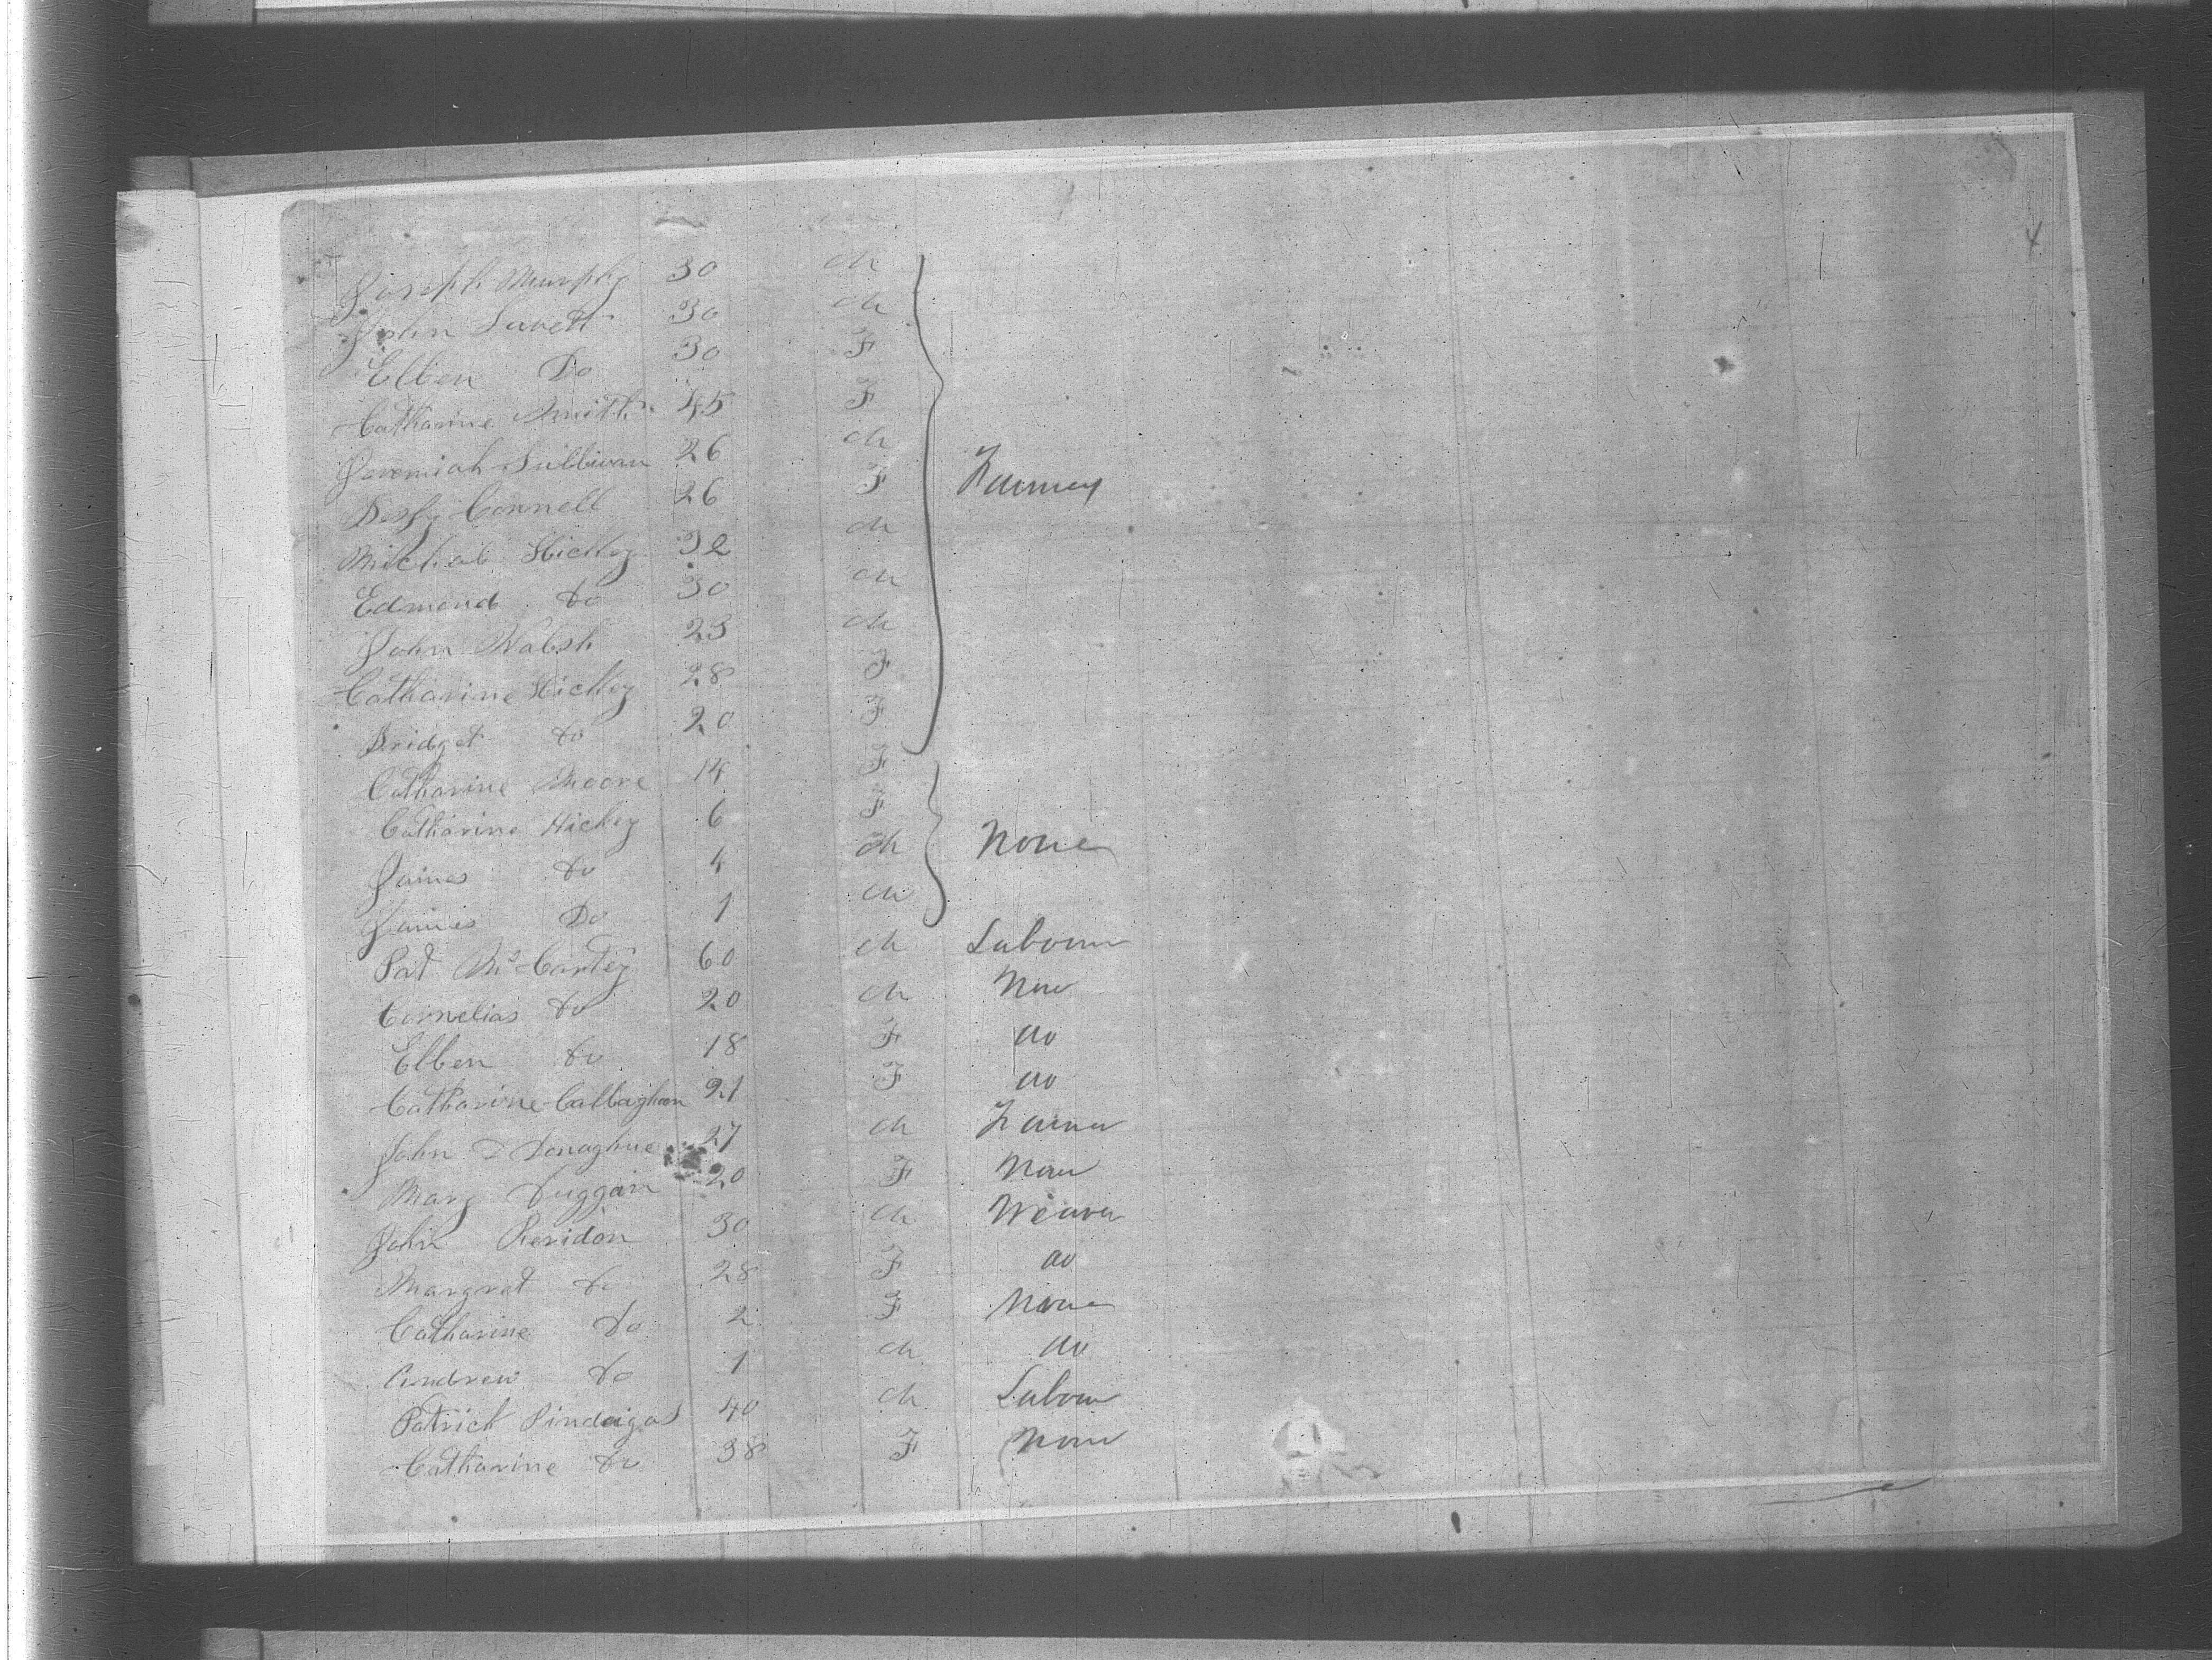 Joseph Murphy 30 M
John Lovett 30 M
Ellen Do 30 F
Catharine Smith 45 F
Jeremiah Sullivan 26 M
Connell 26 F
Farmers
Michal Hickey 32 M
Edmond Do 30 M
John Walsh 23 M
Catharine Hickey 28 F
Bridget Do 20 F
Catharine Moore 14 F
Catharine Hickey 6 F
James Do 4 M None
James Do 1 M
Pat McCartey 60 M Labourer
Cornelias Do 20 M None
Ellen Do 18 F do
Catharine Callaghan 21 F do
John Donaghue 27 M Farmer
Mary Duggan 20 F None
John Reridon 30 M Weaver
Margret Do 28 F do
Catharine Do 2 F None
Andrew Do 1 M do
Patrick 40 M Labour
Catharine Do 38 F None